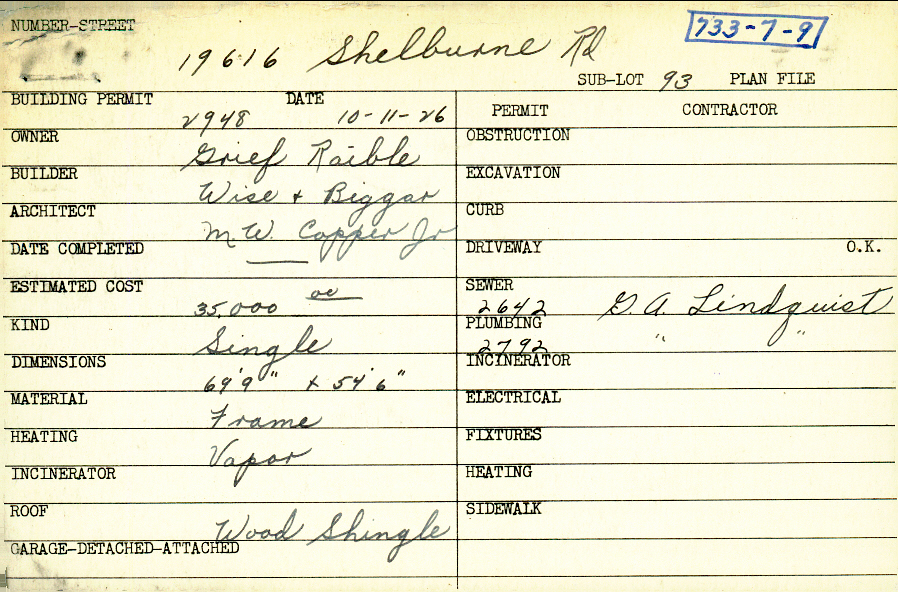 NUMBER-STREET
733-7-9
19616 Shelburne Rd
SUB-LOT 93 PLAN FILE
BUILDING PERMIT DATE
2948 10-11-26
PERMIT CONTRACTOR
OWNER
Grief Raible
OBSTRUCTION
BUILDER
Wise + Biggar
EXCAVATION
ARCHITECT
M.W. Copper Jr
CURB
DATE COMPLETED
DRIVEWAY O.K.
ESTIMATED COST
35,000 oo
SEWER
2642 G. A. Lindquist
KIND
Single
PLUMBING
2792 " "
DIMENSIONS
69'9" x 54'6"
INCINERATOR
MATERIAL
Frame
ELECTRICAL
HEATING
Vapor
FIXTURES
INCINERATOR
HEATING
ROOF
Wood Shingle
SIDEWALK
GARAGE-DETACHED-ATTACHED